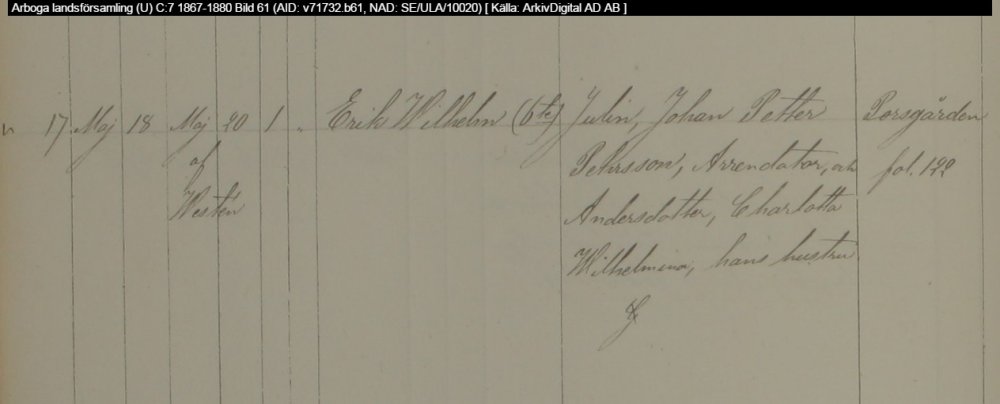 Arboga landsförsamling (U) C:7 1867-1880 Bild 61 (AID: v71732.b61, NAD: SE/ULA/10020) [ Källa: ArkivDigital AD AB ]
17 Maj 18 Maj 20 1 " Erik Wilhelm (6te) Julin, Johan Petter Persgården
af Pehrsson, Arrendator, och fol. 192
Westén Andersdotter, Charlotta
Wilhelmina, hans hustru